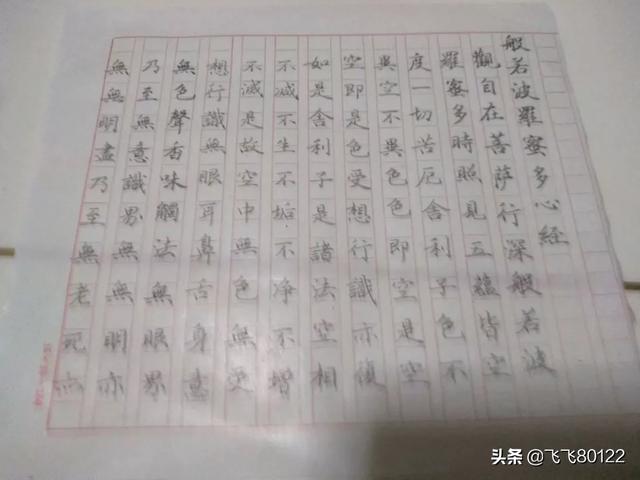 般若波羅蜜多心経
觀自在菩薩行深般若波
羅蜜多時照見五蘊皆空
度一切苦厄舍利子色不
異空不異色色即空是空
空即是色受想行識亦復
如是舍利子是諸法空相
不滅不生不垢不淨不增
不減是故空中無色無受
想行識無眼耳鼻舌身意
無色聲香味觸法無眼界
乃至無意識界無無明亦
無無明盡乃至無老死亦
头条 @飞飞80122